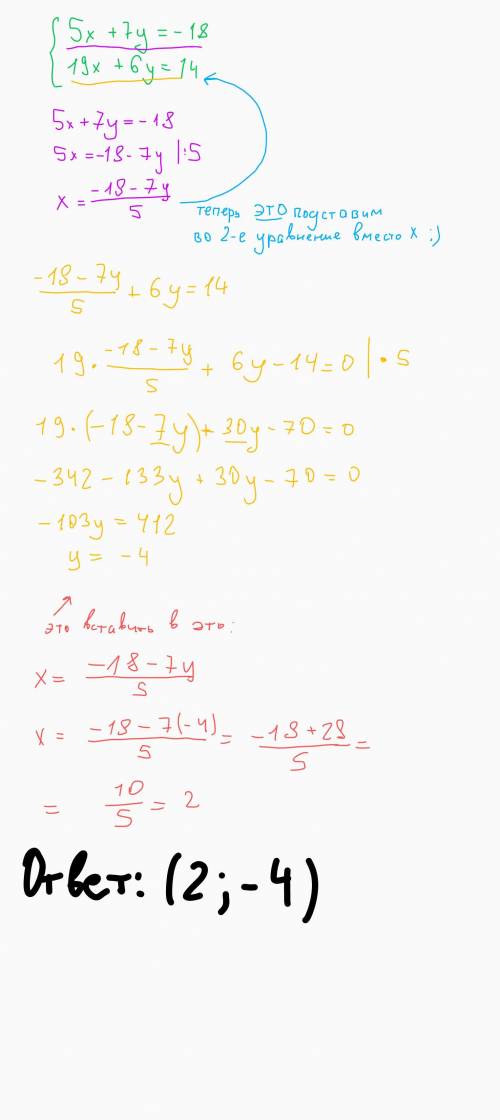 5x + 7y = -18
19x + 6y = 14
5x + 7y = -18
5x = -18 - 7y |:5
x = \frac{-18 - 7y}{5}
теперь ЭТО подставим
во 2-е уравнение вместо x :)
\frac{-18 - 7y}{5} + 6y = 14
19 · \frac{-18 - 7y}{5} + 6y - 14 = 0 | · 5
19 · (-18 - 7y) + 30y - 70 = 0
-342 - 133y + 30y - 70 = 0
-103y = 412
y = -4
это вставить в это:
x = \frac{-18 - 7y}{5}
x = \frac{-18 - 7(-4)}{5} = \frac{-18 + 28}{5} =
= \frac{10}{5} = 2
Ответ: (2; -4)